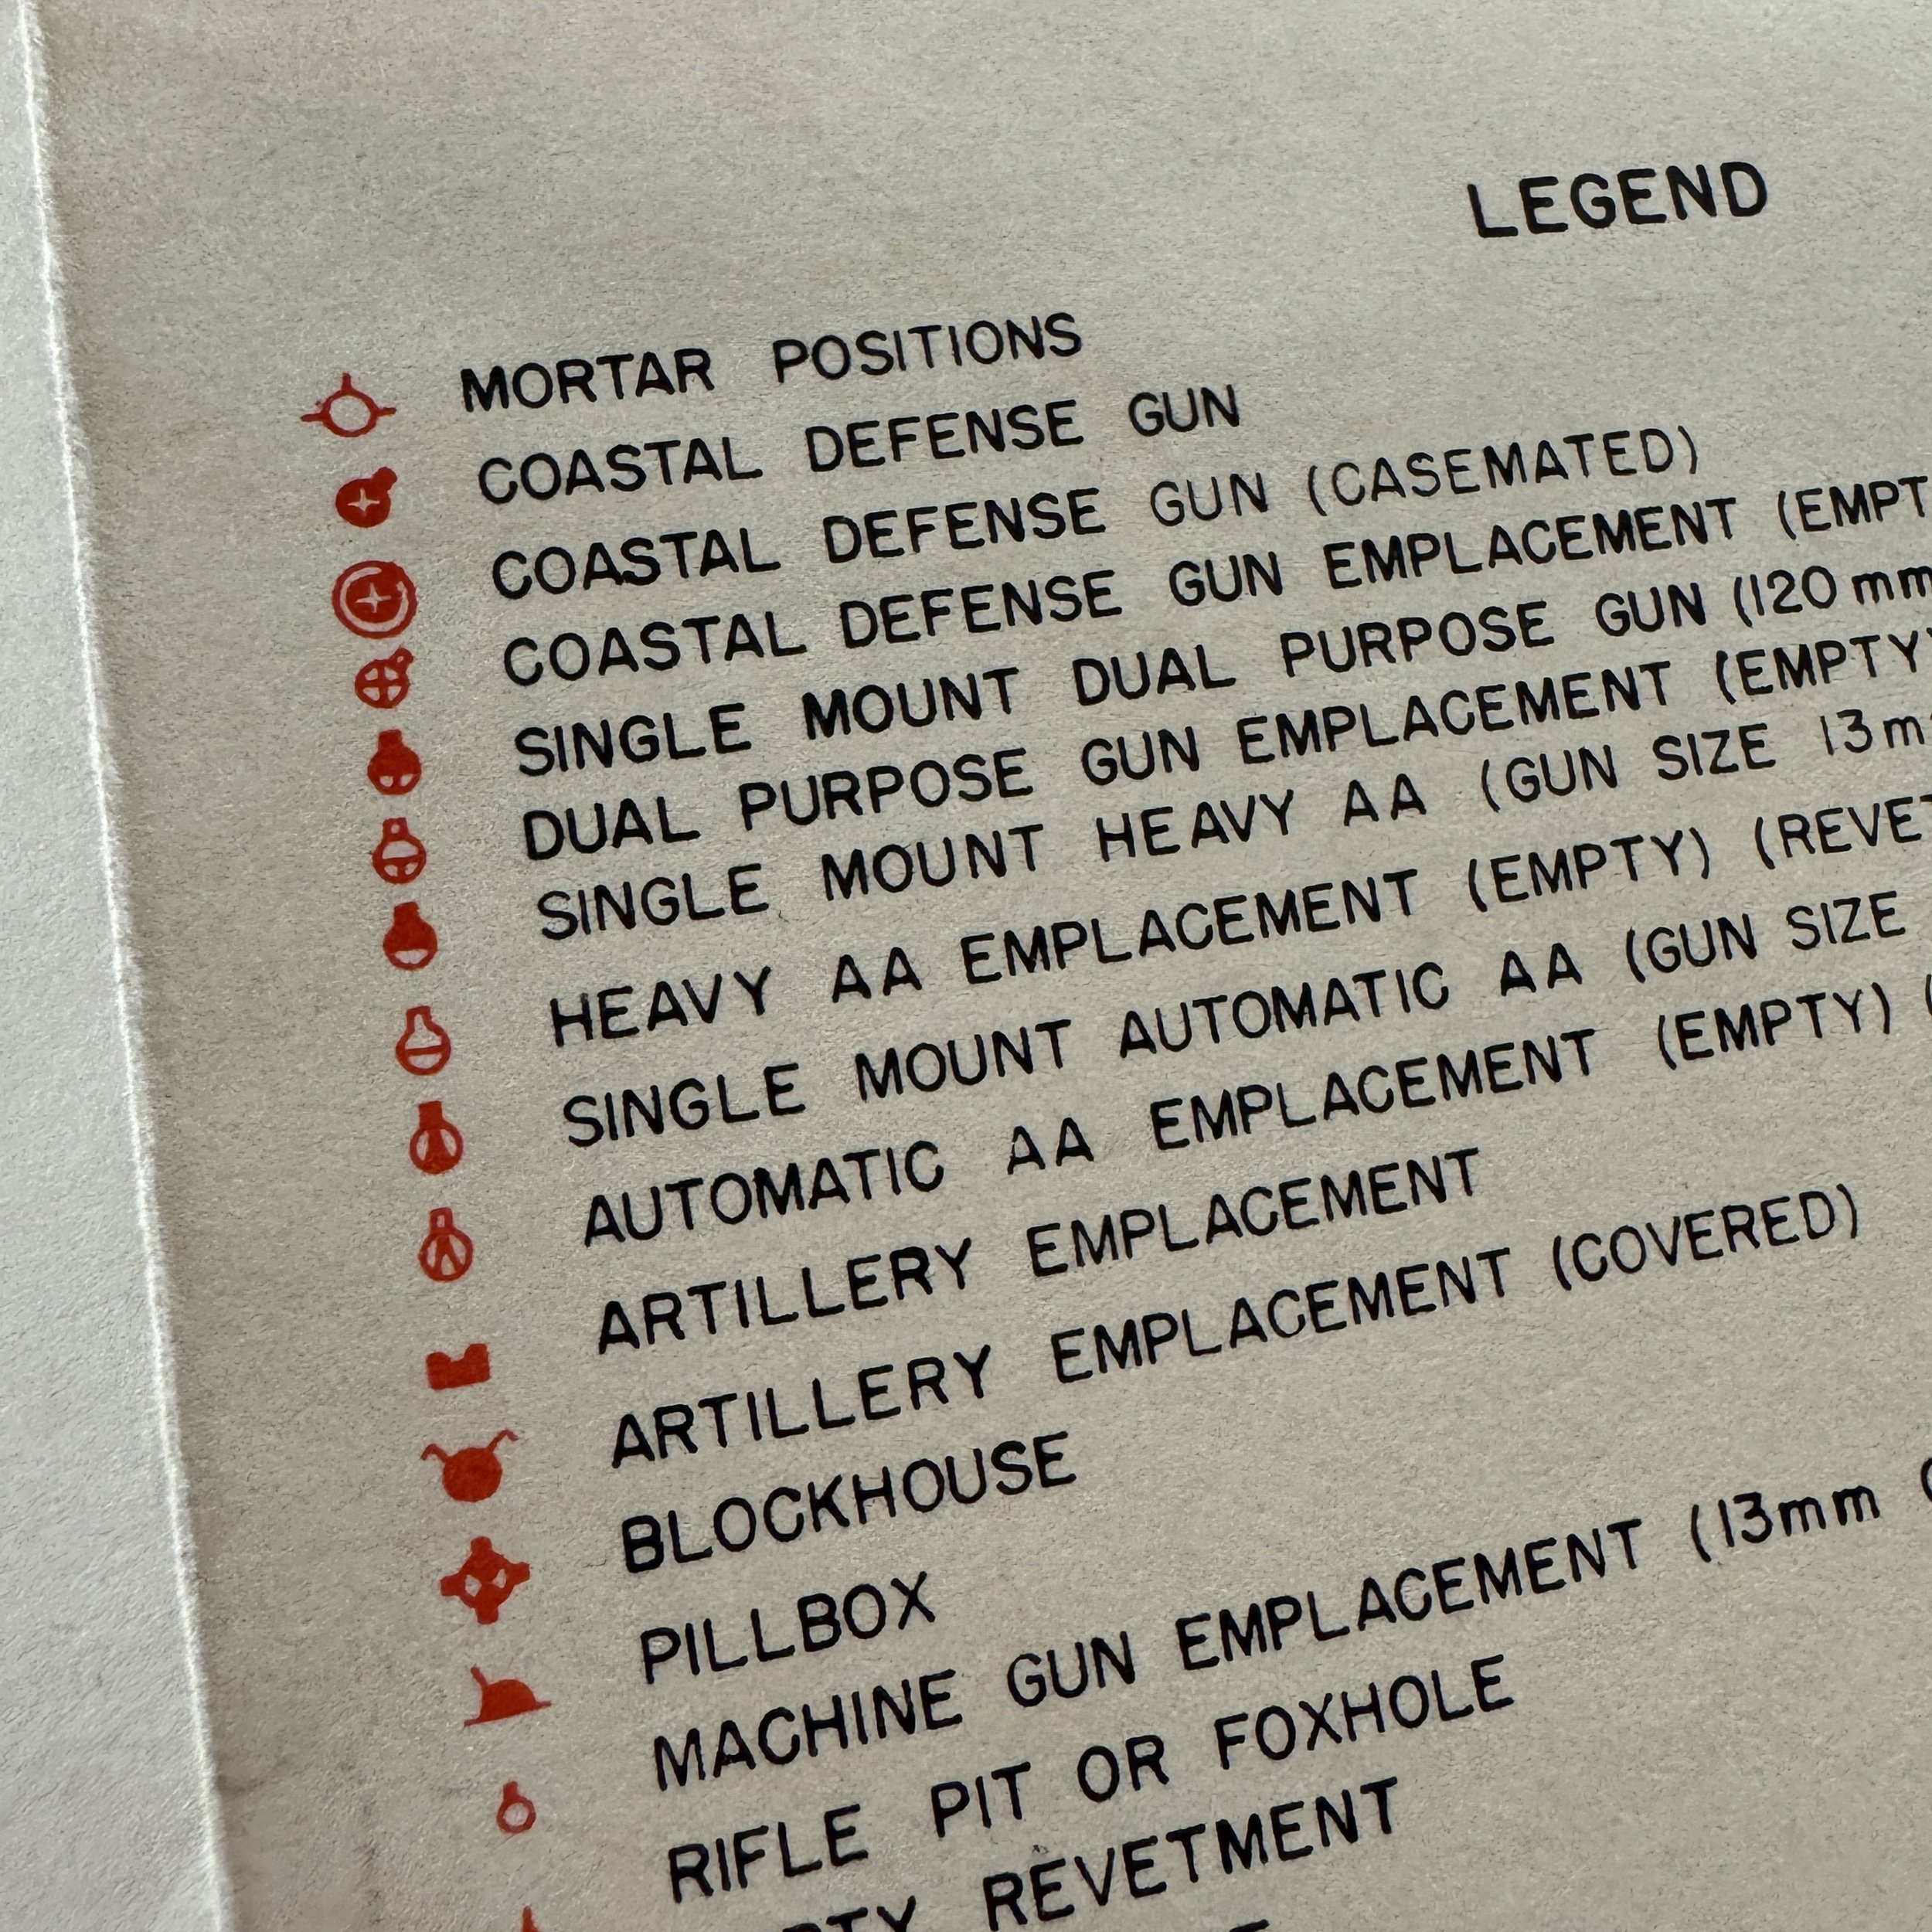 LEGEND
MORTAR POSITIONS
COASTAL DEFENSE GUN
COASTAL DEFENSE GUN (CASEMATED)
COASTAL DEFENSE GUN EMPLACEMENT (EMPT
SINGLE MOUNT DUAL PURPOSE GUN (120 mm
DUAL PURPOSE GUN EMPLACEMENT (EMPTY)
SINGLE MOUNT HEAVY AA (GUN SIZE 13 m
HEAVY AA EMPLACEMENT (EMPTY) (REVET
SINGLE MOUNT AUTOMATIC AA (GUN SIZE
AUTOMATIC AA EMPLACEMENT (EMPTY) (
ARTILLERY EMPLACEMENT
ARTILLERY EMPLACEMENT (COVERED)
BLOCKHOUSE
PILLBOX
MACHINE GUN EMPLACEMENT (13mm
RIFLE PIT OR FOXHOLE
REVETMENT